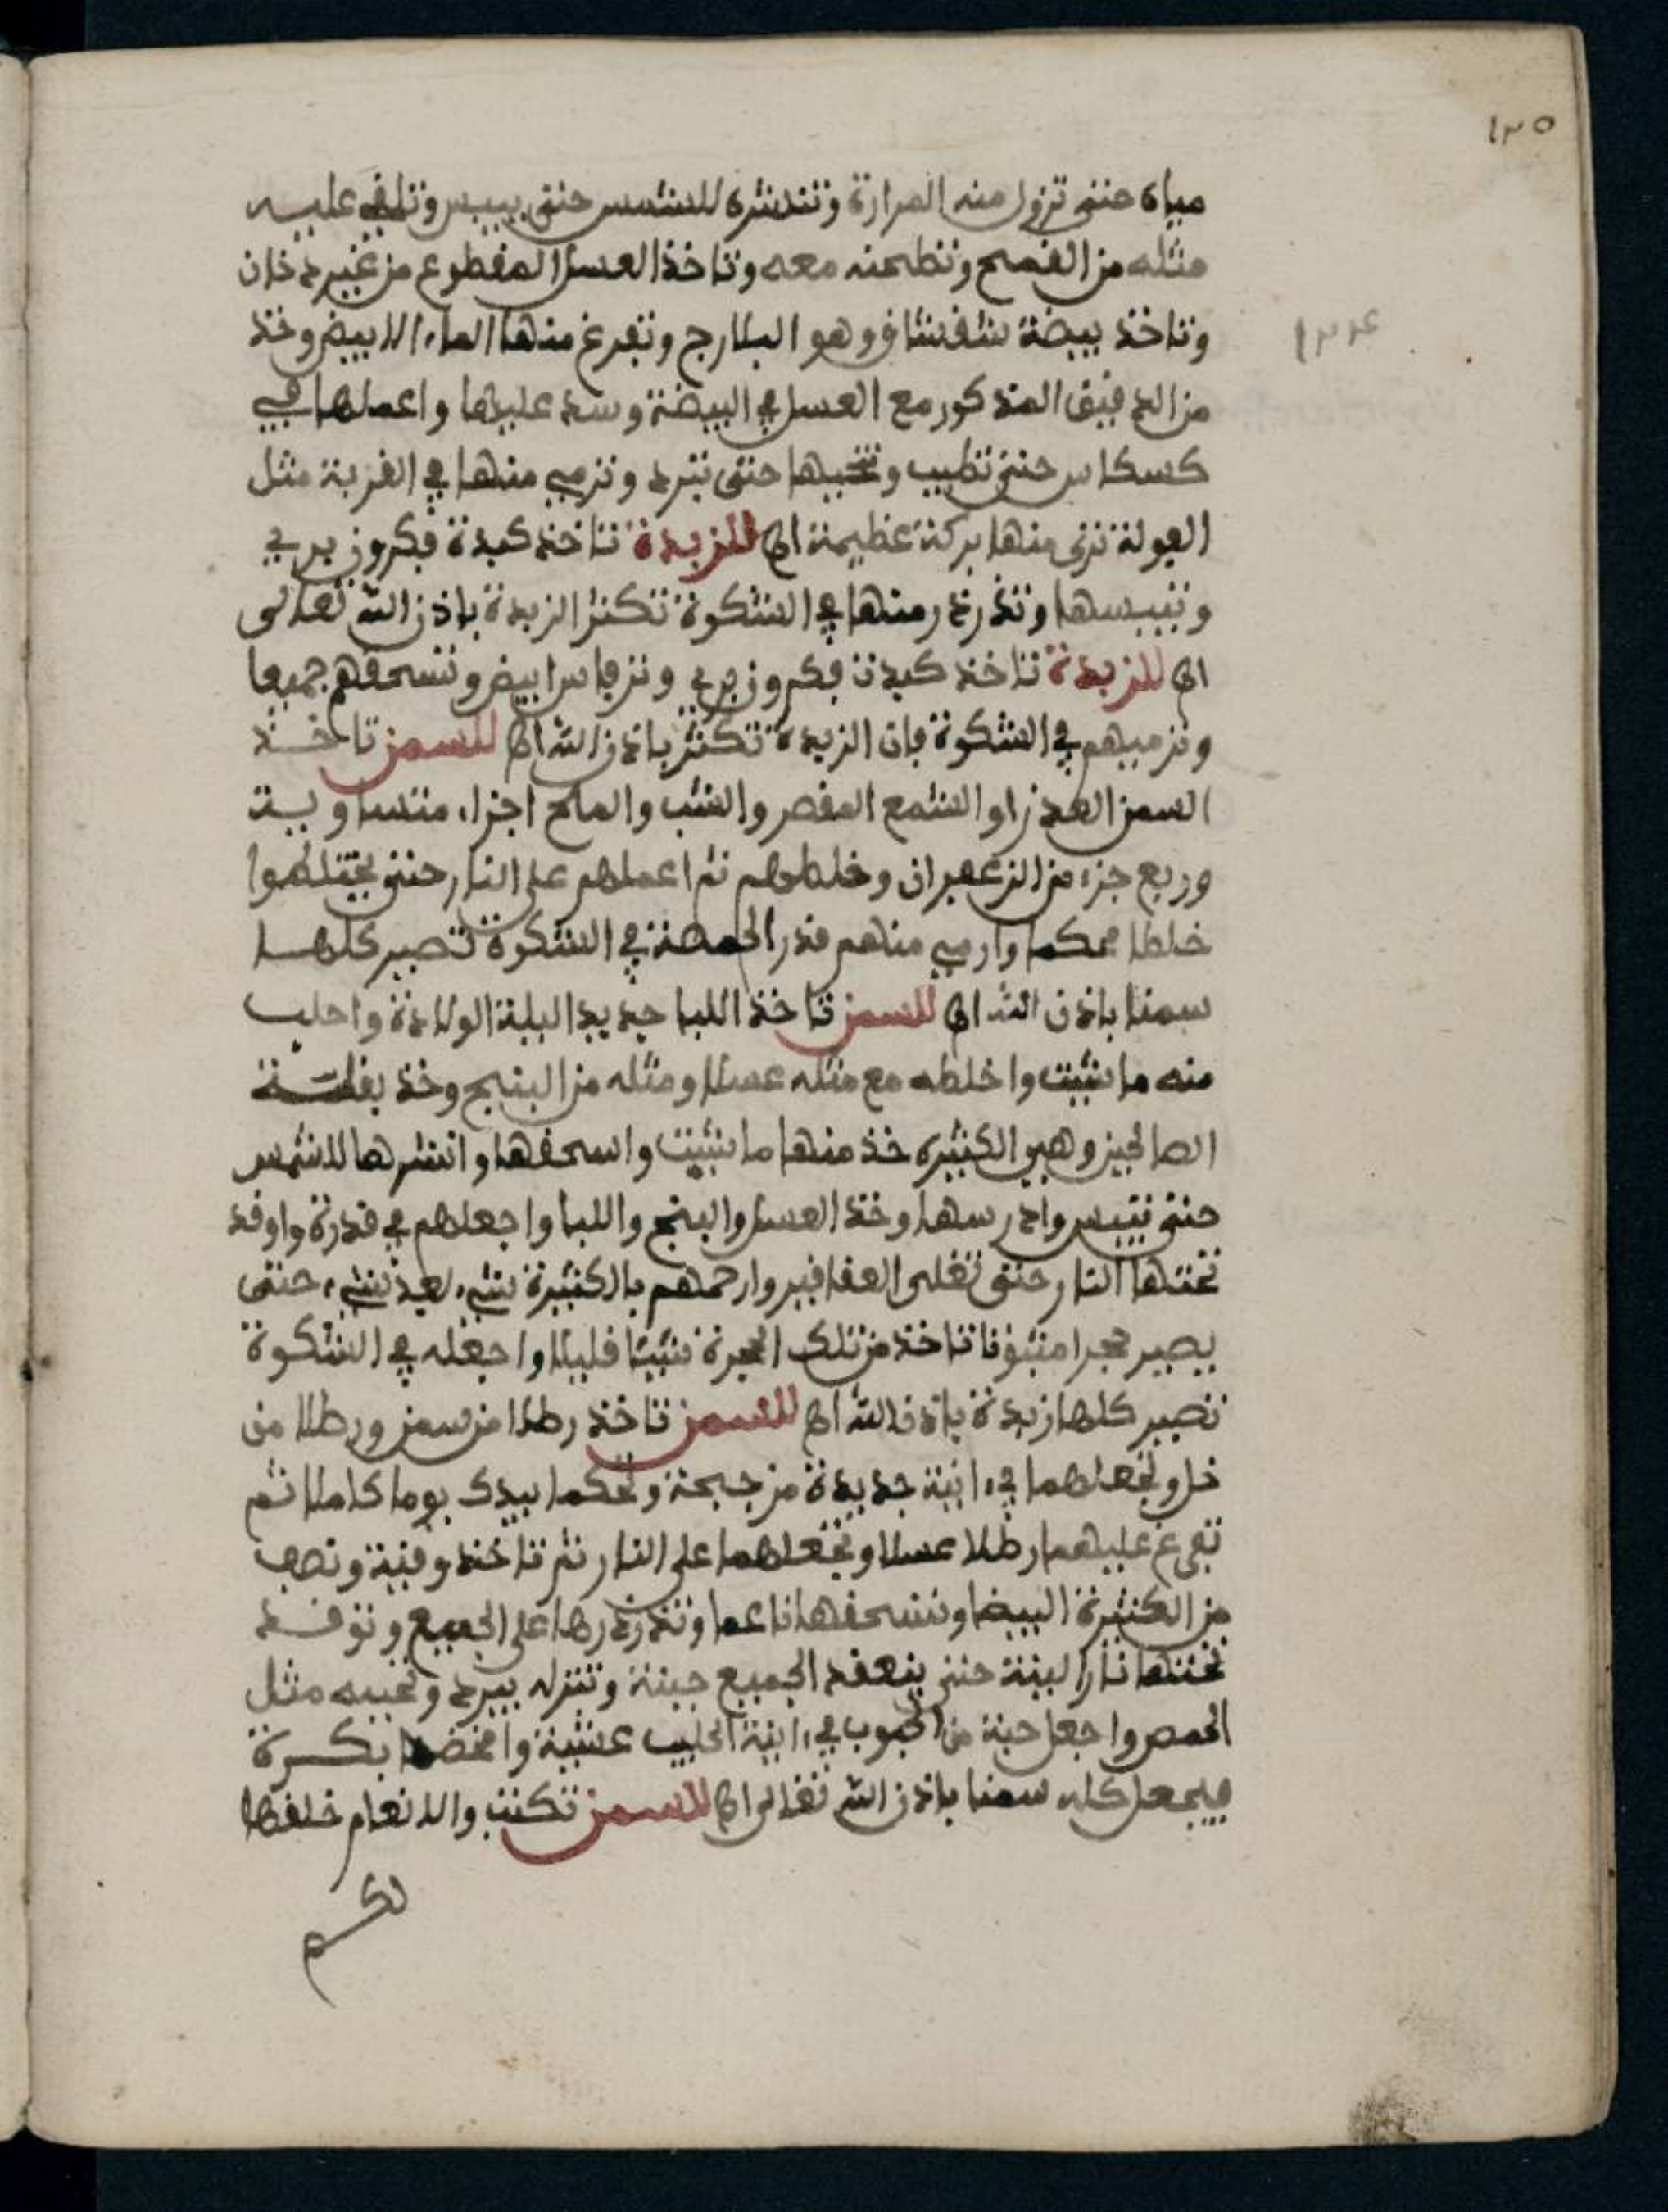 ١٣٥
مياه حتى تزول منه المرارة وتنشره للشمس حتى ييبس وتلقي عليه
مثله من القمح وتطحنه معه وتاخذ العسل المقطوع من غير دخان
١٣٤
وتاخذ بيضة شقشاق وهو البلارج وتفرغ منها الماء الابيض وخذ
من الدقيق المذكور مع العسل في البيضة وسد عليها واعملها في
كسكاس حتى تطيب وتخبيها حتى تبرد وترمي منها في القربة مثل
الفولة ترى منها بركة عظيمة اه للزبدة تاخذ كبدة فكرون بري
وتيبسها وتذرذر منها في الشكوة تكثر الزبدة باذن الله تعالى
اه للزبدة تاخذ كبدت فكرون بري وترفاس ابيض وتسحقهم جميعا
وترميهم في الشكوة فان الزبدة تكثر باذن الله اه للسمن تاخذ
السمن العذراو الشمع المقصر والشب والملح اجزاء متساويت
وربع جزء من الزعفران وخلطهم ثم اعملهم على النار حتى يختلطوا
خلطا محكما وارمي منهم قدر الحمصة في الشكوة تصير كلها
سمنا باذن الله اه للسمن تاخذ اللبا جديد البلية الولادة واحلب
منه ما شيت واخلطه مع مثله عسلا ومثله من البنج وخذ بقلة
الصالحين وهي الكثيره خذ منها ما شيت واسحقها وانشرها للشمس
حتى تيبس وادرسها وخذ العسل والبنج واللبا واجعلهم في قدرة واوقد
تحتها النار حتى تغلى العقاقير وارحمهم بالكثيرة شيء بعد شيء حتى
يصير حجرا مثبوتا تاخذ من تلك الحجرة شيئا قليلا واجعله في الشكوة
تصير كلها زبدة باذن الله اه للسمن تاخذ رطلا من سمن ورطلا من
خل وتجعلهما في ءانية جديدة من جبحة وتحكما بيدك يوما كاملا ثم
تفرغ عليهما رطلا عسلا وتجعلهما على النار ثم تاخذ وقية ونصف
من الكثيرة البيضا وتسحقها ناعما وتذرذرها على الجميع وتوقد
تحتها نارا لينة حتى ينعقد الجميع جبنة وتنزله يبرد وتحببه مثل
الحمص واجعل حبة من الحبوب في ءانية الحليب عشية وامخضها بكرة
فيجعل كله سمنا باذن الله تعالى اه للسمن تكتب والانعام خلقها
لكم